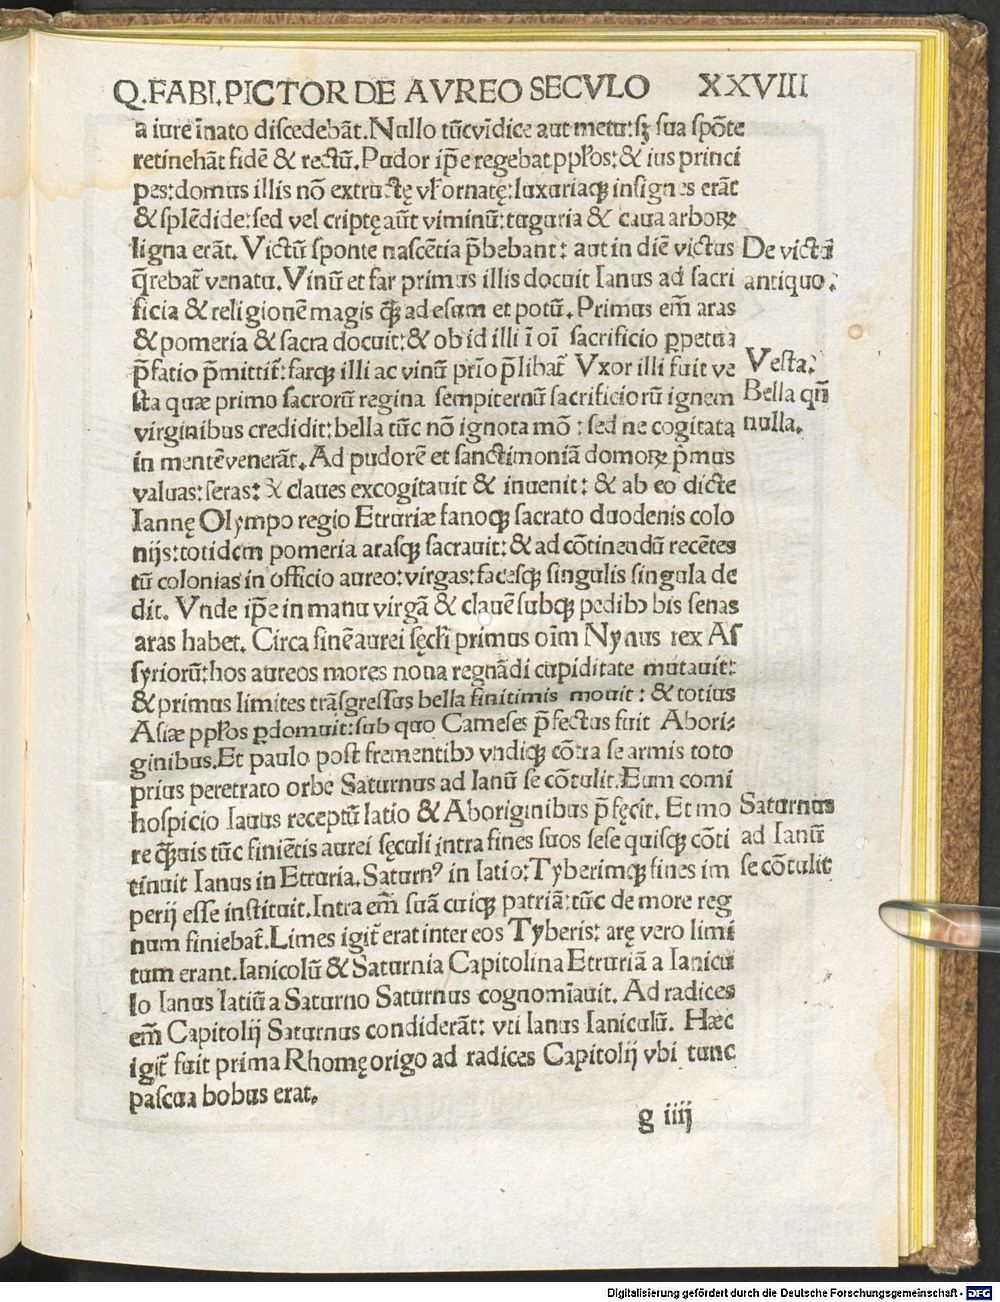 Q.FABI.PICTOR DE AVREO SECVLO XXVIII
a iure īnato discedebāt.Nullo tūcvīdice aut metu:sꝫ sua spōte
retinebāt fidē & rectū.Pudor ip̄e regebat ppl̄os:& ius princi
pes:domus illis nō extructę vl̄ ornatę:luxuriaqꝫ insignes erāt
& splēdide:sed vel criptę aūt viminū:tuguria & caua arboꝝ
ligna erāt. Victū sponte nascētia p̄bebant: aut in diē victus
De victū
q̄rebat̄ venatu.Vinū et far primus illis docuit Ianus ad sacri
antiquo.
ficia & religionē magis q̄ꝫ ad esum et potū.Primus em̄ aras
& pomeria & sacra docuit:& ob id illi ī oī sacrificio ꝑpetua
p̄fatio p̄mittit̄:farqꝫ illi ac vinū prīo p̄libat̄ Vxor illi fuit ve
Vesta.
sta quæ primo sacrorū regina sempiternū sacrificiorū ignem
Bella qn̄
virginibus credidit:bella tūc nō ignota mō : sed ne cogitata
nulla.
in mentē venerāt.Ad pudorē et sanctimoniā domoꝝ p̄mus
valuas:seras: & claues excogitauit & inuenit: & ab eo dicte
Iannę Olympo regio Etruriæ fanoqꝫ sacrato duodenis colo
nijs:totidem pomeria arasqꝫ sacrauit:& ad cōtinendū recētes
tū colonias in officio aureo:virgas:facesqꝫ singulis singula de
dit. Vnde ip̄e in manu virgā & clauē subqꝫ pedibꝯ bis senas
aras habet. Circa finē aurei sęcl̄i primus oīm Nynus rex As
syriorū:hos aureos mores noua regnādi cupiditate mutauit:
& primus limites trāsgressus bella finitimis mouit: & totius
Asiæ ppl̄os ꝑdomuit:sub quo Cameses p̄fectus fuit Abori-
ginibus.Et paulo post frementibꝯ vndiqꝫ cōtra se armis toto
prius peretrato orbe Saturnus ad Ianū se cōtulit.Eum comi
hospicio Iauus receptū latio & Aboriginibus p̄fęcit. Et mo
Saturnus
re q̄ꝫuis tūc finiētis aurei sęculi intra fines suos sese quisqꝫ cōti
ad Ianū
tinuit Ianus in Etruria.Saturnꝰ in latio:Tyberimqꝫ fines im
se cōtulit
perij esse instituit.Intra em̄ suā cuiqꝫ patriā:tūc de more reg
num finiebat̄.Limes igit̄ erat inter eos Tyberis: arę vero limi
tum erant.Ianicolū & Saturnia Capitolina Etruriā a Ianicu
lo Ianus latiū a Saturno Saturnus cognomīauit. Ad radices
em̄ Capitolij Saturnus condiderāt: vti Ianus Ianiculū. Hæc
igit̄ fuit prima Rhomę origo ad radices Capitolij vbi tunc
pascua bobus erat.
g iiij
Digitalisierung gefördert durch die Deutsche Forschungsgemeinschaft - DFG